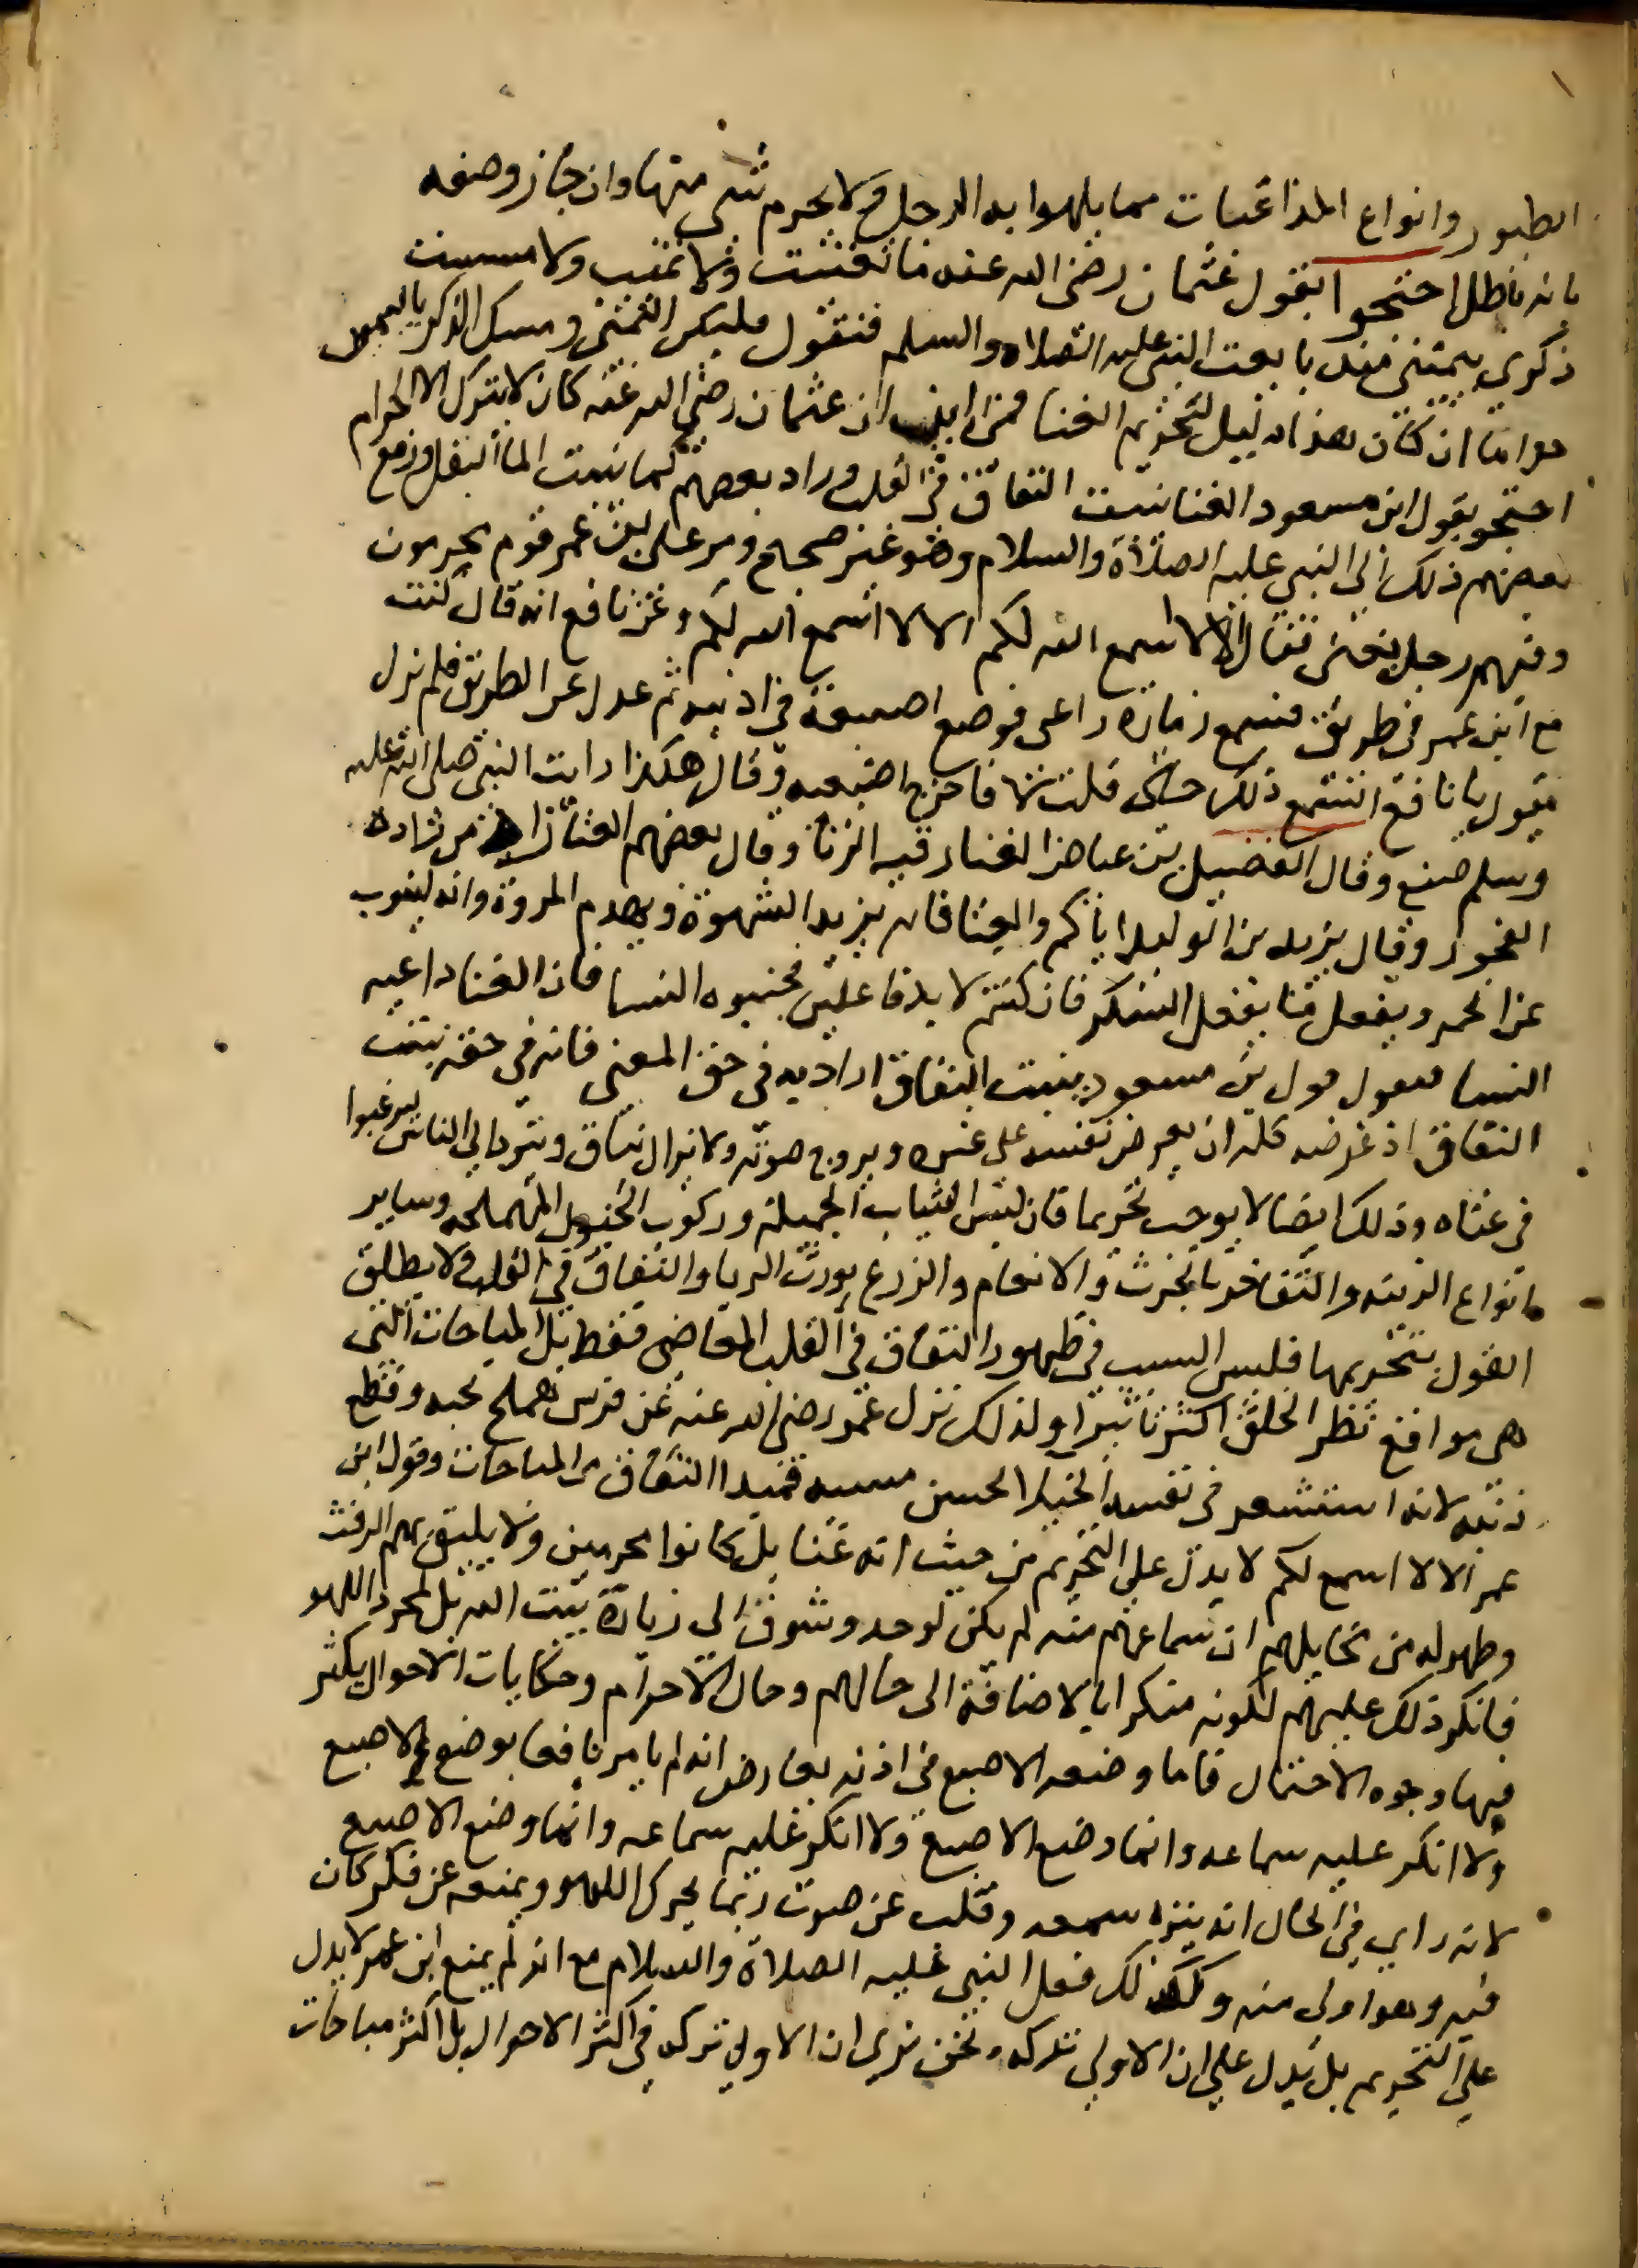 الطبور وانواع المداعبات مما يلهوا به الرجل ولا يحرم شي منها وان جاز وصفه
بانه باطل احتجوا بقول عثمان رضى الله عنه ما تغنيت ولا تمنيت ولا مسست
ذكرى بيمينى منذ بايعت النبى عليه الصلاه والسلم فنقول فليكن التمنى ومسك الذكر باليمين
حراما ان كان هذا دليل لتحريم الغنا فمن اين ان عثمان رضى الله عنه كان لا يترك الا الحرام
احتجو بقول ابن مسعود الغنا ينبت النفاق فى القلب وزاد بعضهم كما ينبت الما البقل ورفع
بعضهم ذلك الى النبي عليه الصلاة والسلام وهو غير صحيح ومر على ابن عمر قوم محرمون
وفيهم رجل يتغنى فقال الا لا اسمع الله لكم الا لا اسمع الله لكم وعن نافع انه قال كنت
مع ابن عمر فى طريق فسمع زمارة راعى فوضع اصبعية فى اذنيه ثم عدل عن الطريق فلم يزل
يقول يا نافع اتسمع ذلك حتى قلت لا فاخرج اصبعيه وقال هكذا رايت النبى صلى الله عليه
وسلم صنع وقال الفضيل بن عياض الغنا رقيه الزنا وقال بعضهم الغنا من
الفجور وقال يزيد بن الوليد اياكم والغنا فانه يزيد الشهوة ويهدم المروة وانه لينوب
عن الخمر ويفعل ما يفعل السكر فان كنتم لا بد فاعلين فجنبوه النسا فان الغنا داعيه
النسا فنقول قول بن مسعود ينبت النفاق اراد به فى حق المغني فانه في حقه ينبت
النفاق اذ غرضه كله ان يعرض نفسه على غيره ويروج صوته ولا يزال ينافق ويتودد الي الناس ليرغبوا
فى غناه وذلك ايضا لا يوجب تحريما فان لبس الثياب الجميلة وركوب الخيول المهملجه وساير
انواع الزينه والتفاخر بالحرث والانعام والزرع يورث الريا والنفاق فى القلب ولا يطلق
القول بتحريمها فليس السبب فى ظهور النفاق فى القلب المعاصى فقط بل المباحات التى
هى مواقع نظر الخلق اكثر تاثيرا ولذلك نزل عمر رضى الله عنه عن فرس هملج تحته وقطع
ذنبه لانه استشعر فى نفسه الخيلا لحسن مشيه فمبدا النفاق من المباحات وقول ابن
عمر الا لا اسمع لكم لا يدل على التحريم من حيث انه غنا بل كانوا محرمين ولا يليق بهم الرفث
وظهر له من مخايلهم ان سماعهم منه لم يكن لوجد وشوق الى زيارة بيت الله بل لمجرد اللهو
فانكر ذلك عليهم لكونه منكرا بالاضافة الى حالهم وحال الاحرام وحكايات الاحوال يكثر
فيها وجوه الاحتمال فاما وضعه الاصبع فى اذنه يعارضه انه لم يامر نافعا بوضع الاصبع
ولا انكر عليه سماعه وانما وضع الاصبع ولا انكر عليه سماعه وانما وضع الاصبع
لانه راى فى الحال انه ينزه سمعه وقلبه عن صوت ربما يحرك اللهو ويمنعه عن فكر كان
فيه وهو اولى منه وكذلك فعل النبى عليه الصلاة والسلام مع انه لم يمنع ابن عمر لا يدل
على التحريم بل يدل على ان الاولى تركه ونحن نرى ان الاولى تركه فى اكثر الاحوال بل اكثر مباحات